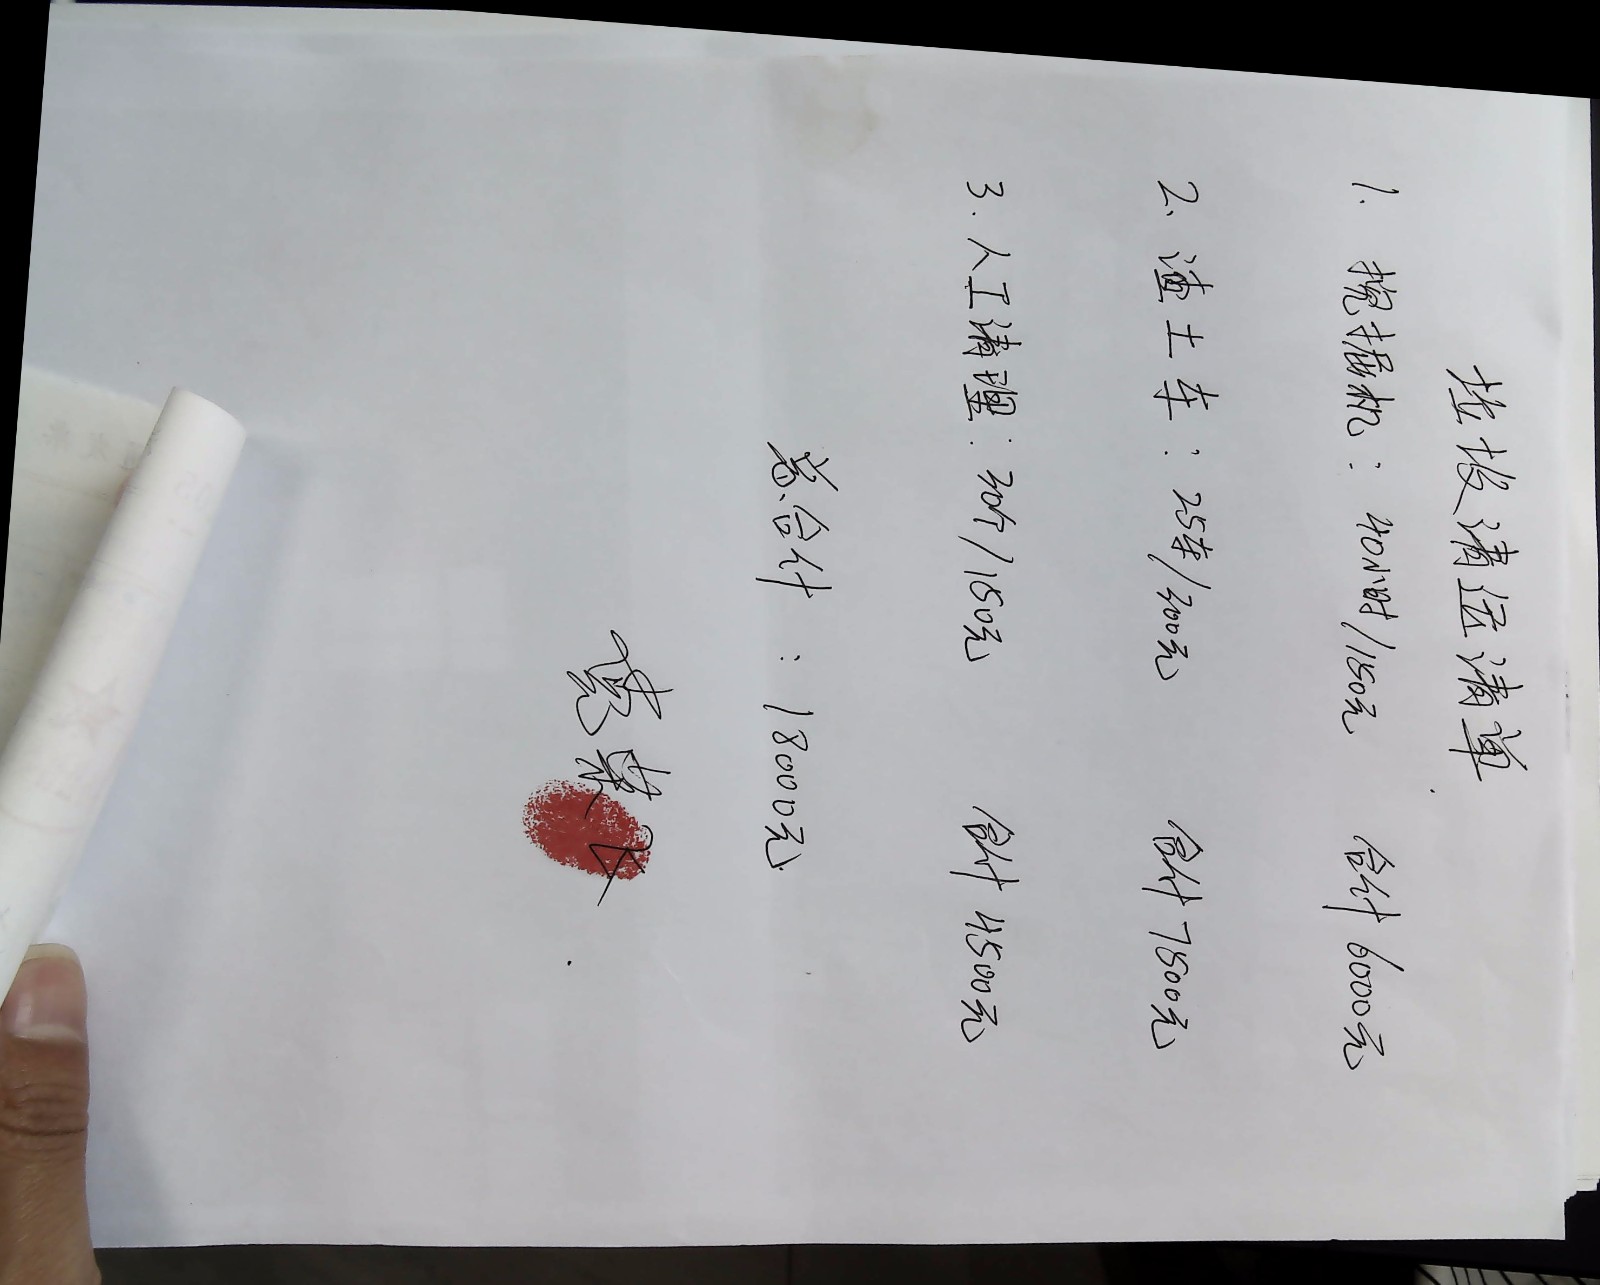 垃圾清运清单
1. 挖掘机：40小时/150元 合计 6000元
2、渣土车：25车/300元 合计 7500元
3. 人工清理：30个/150元 合计 4500元
总合计：18000元